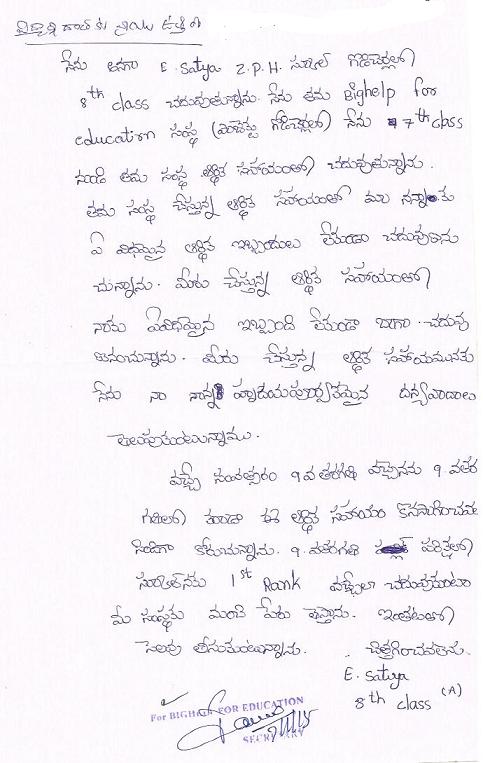 విద్యార్థి దాత కు వ్రాయు ఉత్తరం
నేను అనగా E. Satya Z.P.H. స్కూల్ గొడిచెర్లలో
8th class చదువుతున్నాను. నేను తమ Bighelp for
education సంస్థ గొడిచెర్లలో) నేను 7th class
నుండి తమ సంస్థ ఆర్థిక సహాయంతో చదువుతున్నాను.
తమ సంస్థ చేస్తున్న ఆర్థిక సహాయంతో మా నన్నాకు
ఏ విధమైన ఆర్థిక ఇబ్బందులు లేకుండా చదువుకుం
చున్నాను. మీరు చేస్తున్న ఆర్థిక సహాయంతో
నాకు ఏవిధమైన ఇబ్బంది లేకుండా బాగా చదువు
కుంచున్నాను. మీరు చేస్తున్న ఆర్థిక సహాయమునకు
నేను నా నాన్న హృదయపూర్వకమైన దన్యవాదాలు
తెలుపుకుంటున్నాము.
వచ్చే సంవత్సరం 9వ తరగతి వచ్చెనను 9. వతర
గతిలో కూడా ఈ ఆర్థిక సహాయం కొనసాగించవల
సిందిగా కోరుచున్నాను. 9. వతరగతి పరిక్షలో
1st Rank వచ్చేలా చదువుకుంటా
మీ సంస్థకు మంచి పేరు తెస్తాను. ఇంతటితో
సెలవు తీసుకుంటున్నాను. చిత్తగించవలెను.
E. Satya
8th class (A)
For BIGHELP FOR EDUCATION
SECRETARY